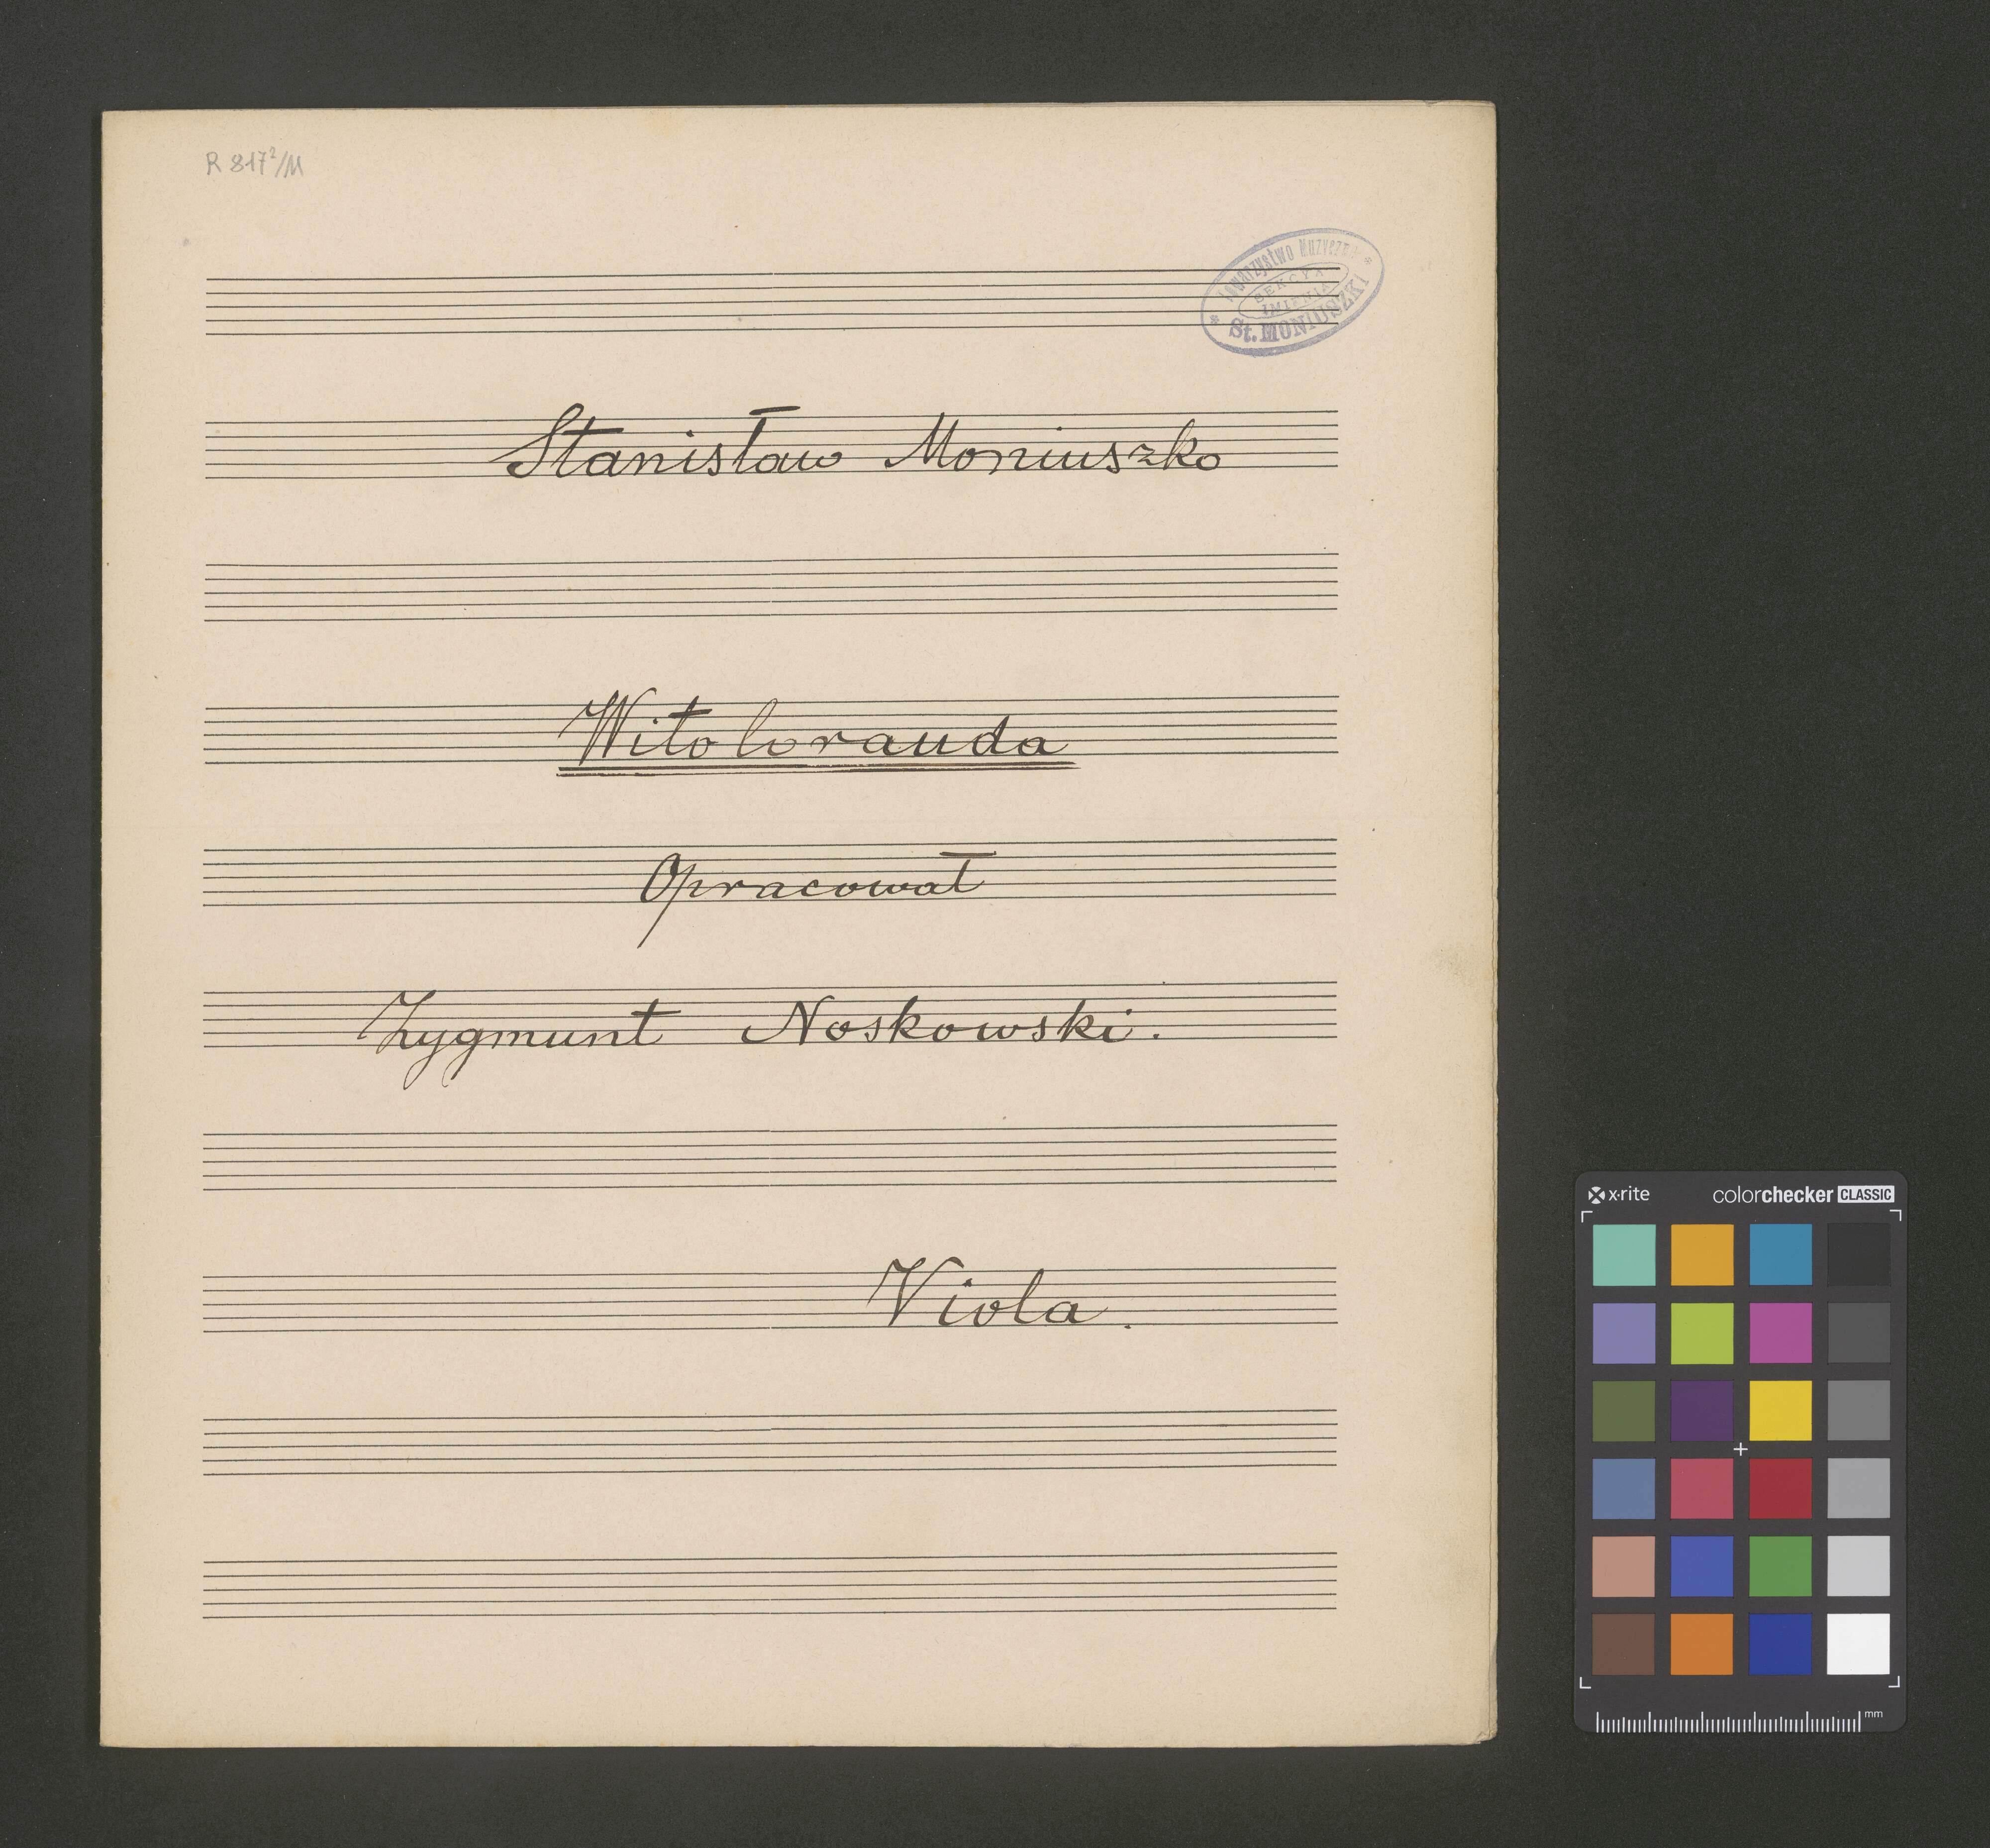 R 817²/M
Towarzystwo Muzyczne
SEKCYA
IMIENIA
St. MONIUSZKI
Stanisław Moniuszko
Witoloranda
Opracował
Zygmunt Noskowski.
Viola.
x·rite colorchecker CLASSIC
mm